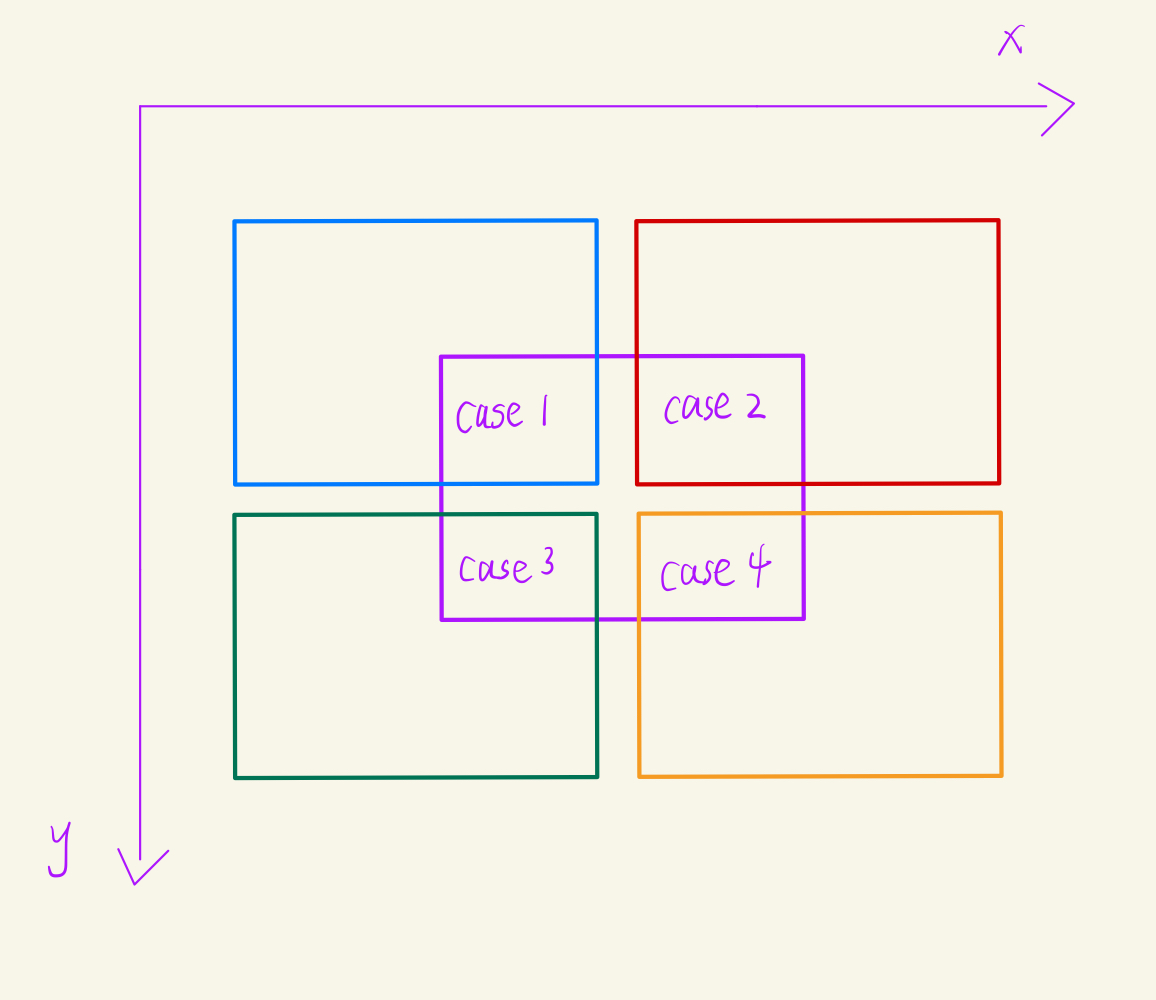 x
case 1
case 2
case 3
case 4
y